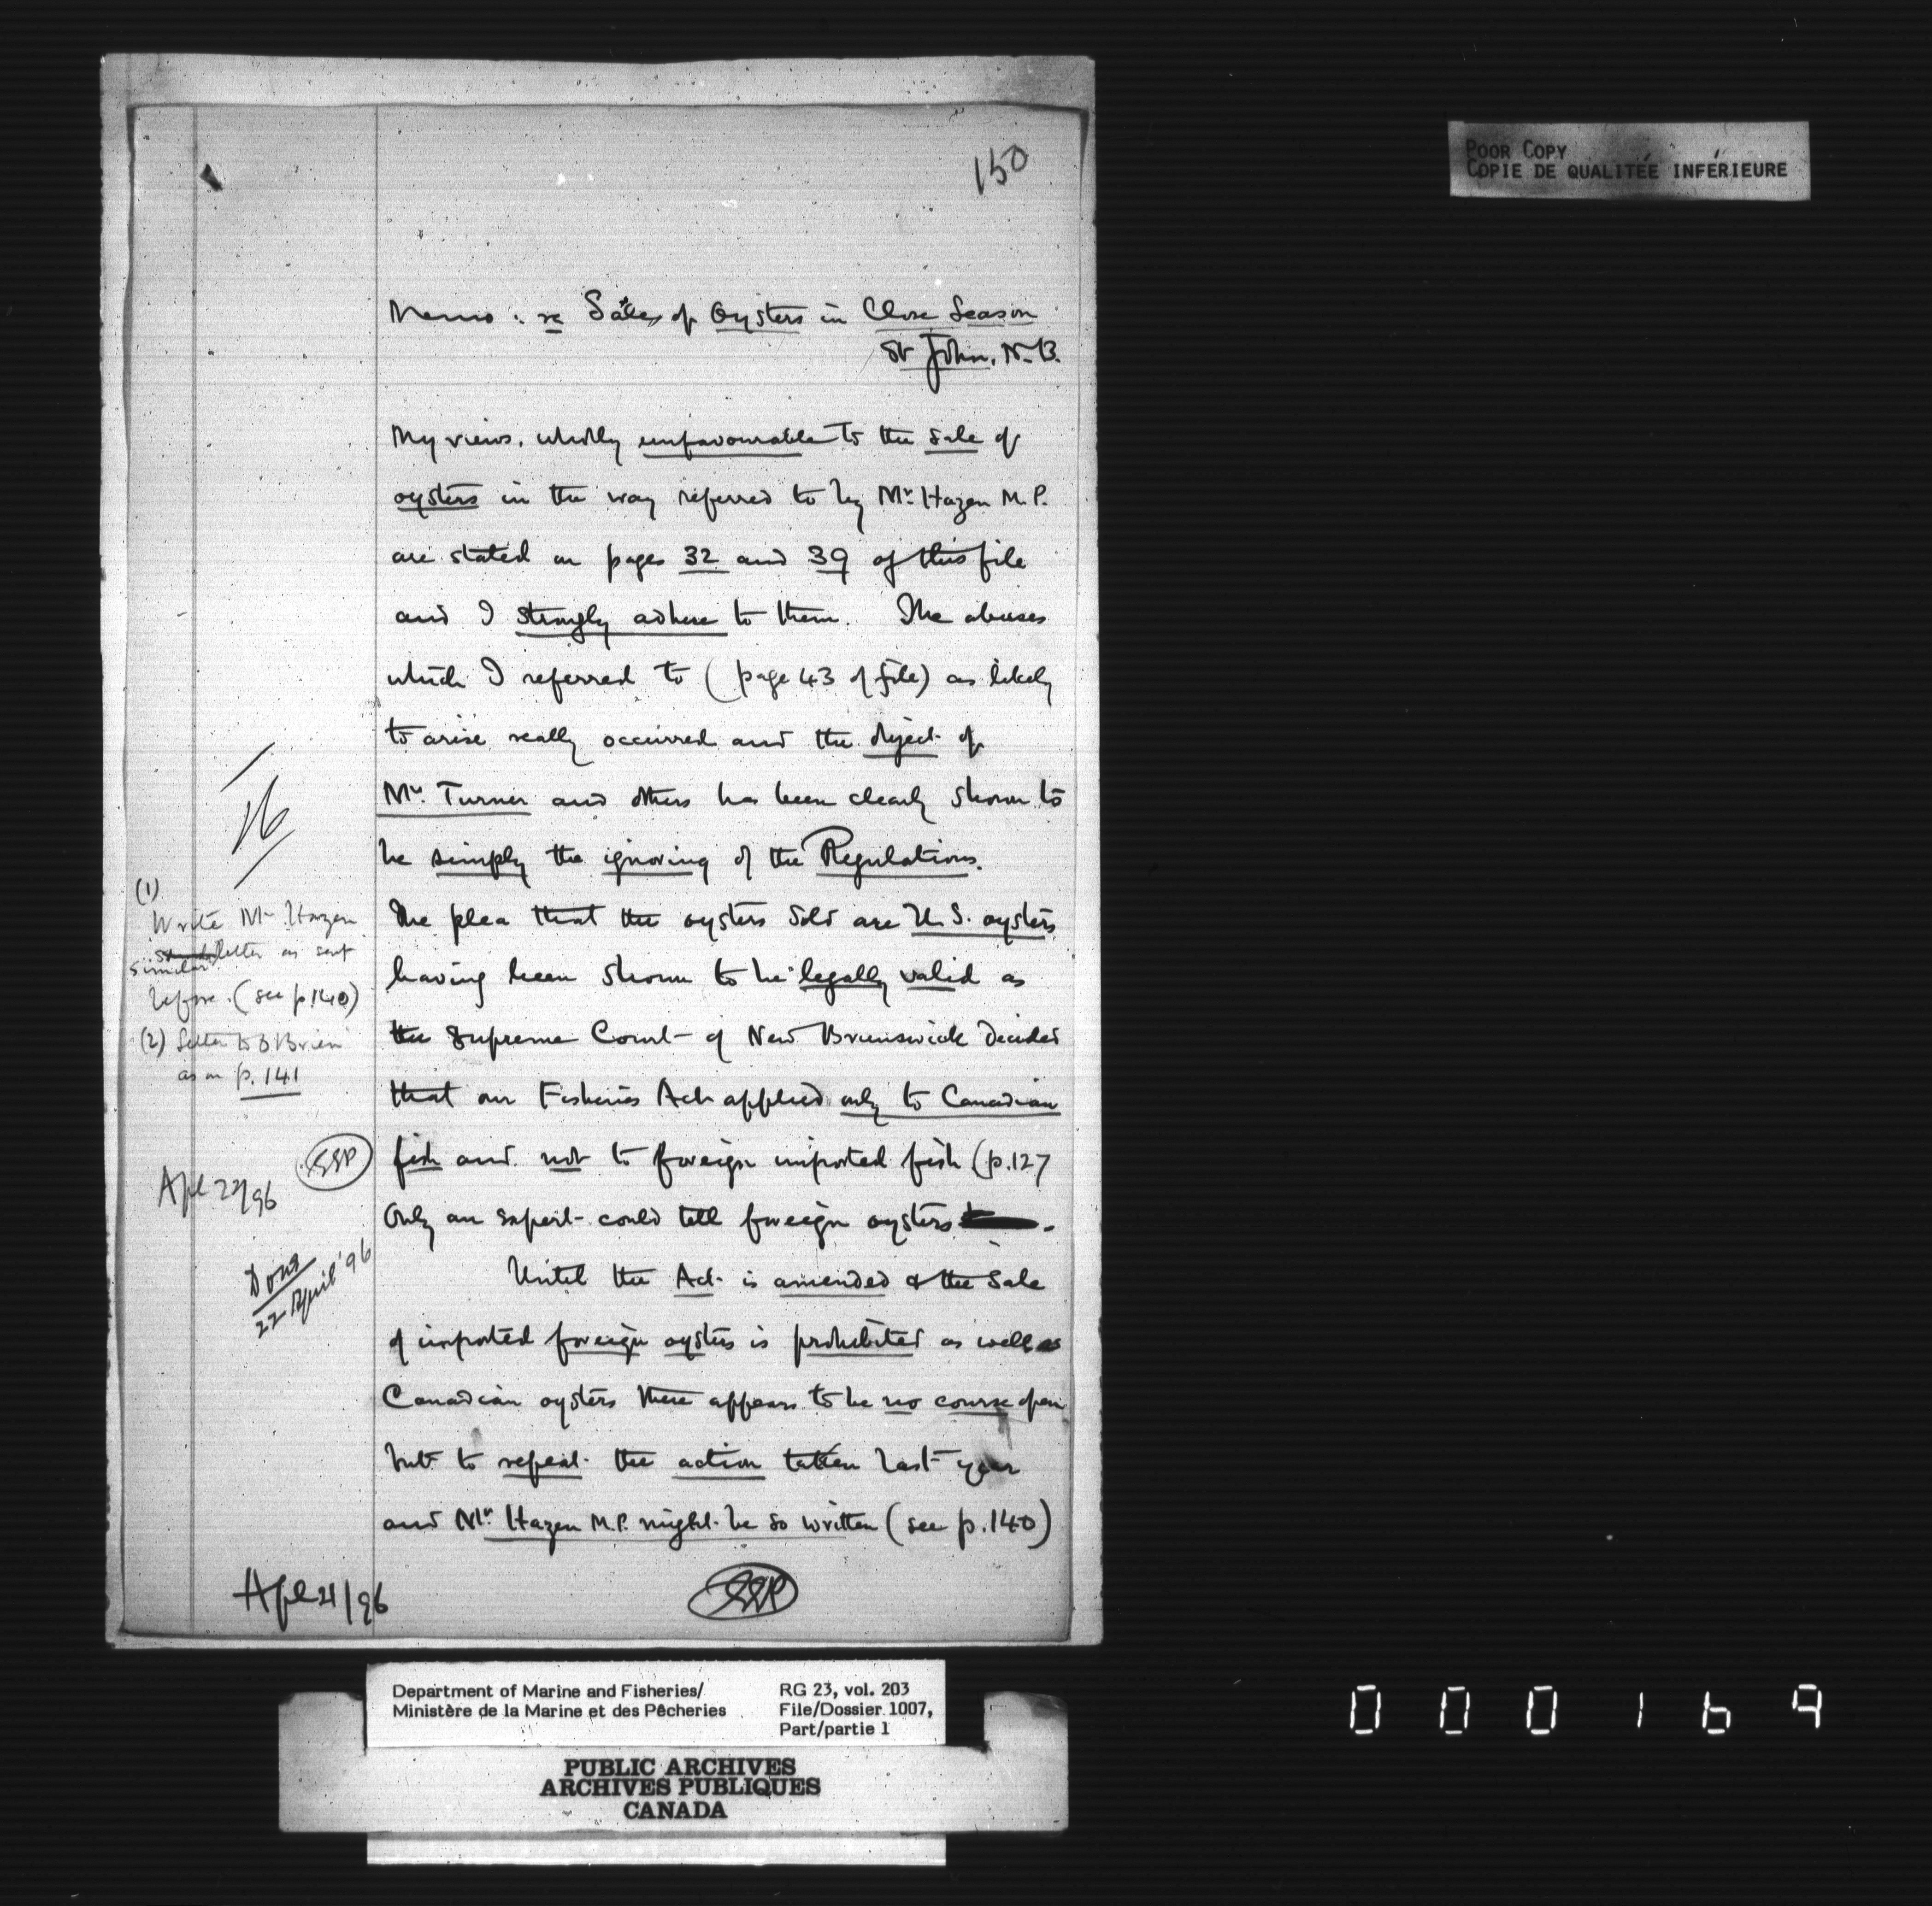 150
POOR COPY
COPIE DE QUALITÉE INFÉRIEURE
Memo : re Sales of Oysters in Close Season
St John, N.B.
My views, wholly unfavourable to the sale of
oysters in the way referred to by Mr. Hazen M.P.
are stated on pages 32 and 39 of this file
and I strongly adhere to them. The abuses
which I referred to (page 43 of file) as likely
to arise really occurred and the object of
Mr. Turner and others has been clearly shown to
be simply the ignoring of the Regulations.
The plea that the oysters sold are U.S. oysters
having been shown to be legally valid as
the Supreme Court of New Brunswick decided
that our Fisheries Act applied only to Canadian
fish and not to foreign imported fish (p.127
Only an expert could tell foreign oysters
Until the Act is amended & the sale
of imported foreign oysters is prohibited as well as
Canadian oysters there appears to be no course open
but to repeat the action taken last year
and Mr. Hazen M.P. might be so written (see p.140)
Apl 21/96
(1)
Write Mr Hazen
similar letter as sent
before. (see p.140)
(2) Letter to O'Brien
as on p. 141
Apl 22/96
Done
22 April '96
Department of Marine and Fisheries/
Ministère de la Marine et des Pêcheries
RG 23, vol. 203
File/Dossier 1007,
Part/partie 1
PUBLIC ARCHIVES
ARCHIVES PUBLIQUES
CANADA
000169